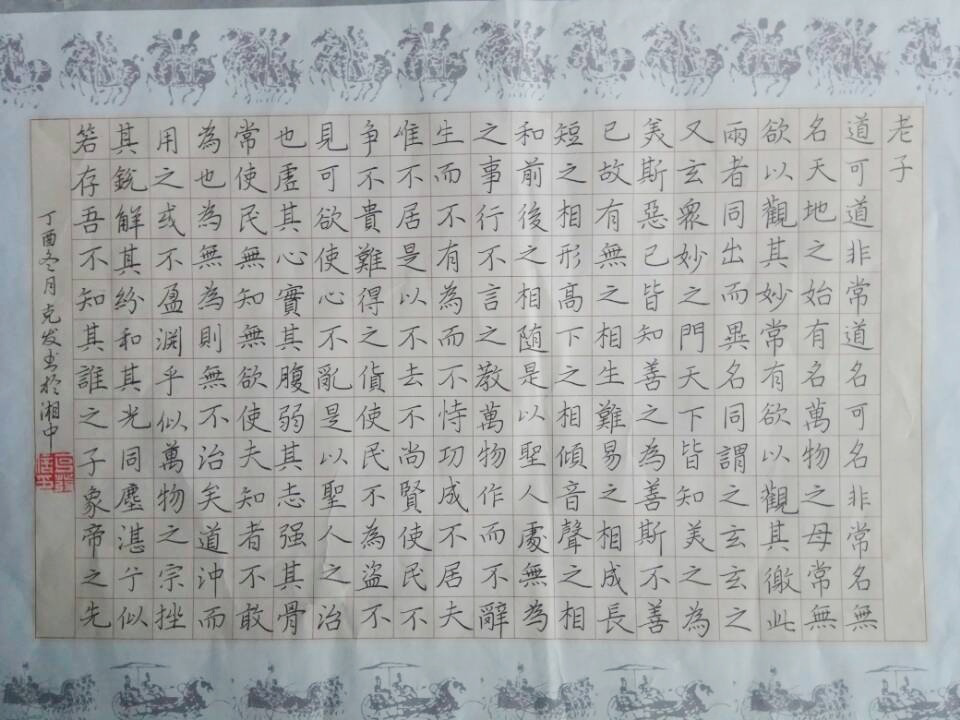 老子
道可道非常道名可名非常名無
名天地之始有名萬物之母常無
欲以觀其妙常有欲以觀其徼此
兩者同出而異名同謂之玄玄之
又玄眾妙之門天下皆知美之為
美斯惡已皆知善之為善斯不善
已故有無之相生難易之相成長
短之相形高下之相傾音聲之相
和前後之相随是以聖人處無為
之事行不言之教萬物作而不辭
生而不有為而不恃功成不居夫
唯不居是以不去不尚賢使民不
争不貴難得之貨使民不為盜不
見可欲使心不亂是以聖人之治
也虛其心實其腹弱其志强其骨
常使民無知無欲使夫知者不敢
為也為無為則無不治矣道沖而
用之或不盈渊乎似萬物之宗挫
其銳解其紛和其光同塵湛兮似
若存吾不知其誰之子象帝之先
丁酉冬月克发书於湘中